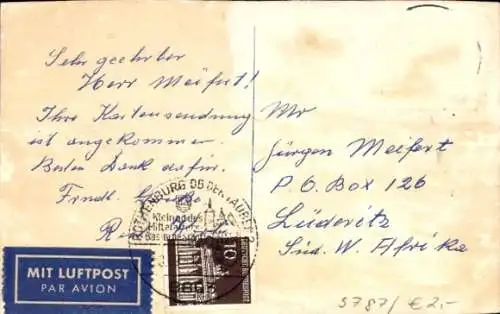 Sehr geehrter
Herr Meifert!
Ihre Kartensendung
ist angekommen.
Besten Dank dafür.
Frndl.
Mr
Jürgen Meifert
P.O. Box 126
Lüderitz
Süd. W. Afrika
ROTHENBURG OB DER TAUBER
Kleinod des
Mittelalters
MIT LUFTPOST
PAR AVION
10
DEUTSCHE BUNDESPOST
5787/ € 2.-